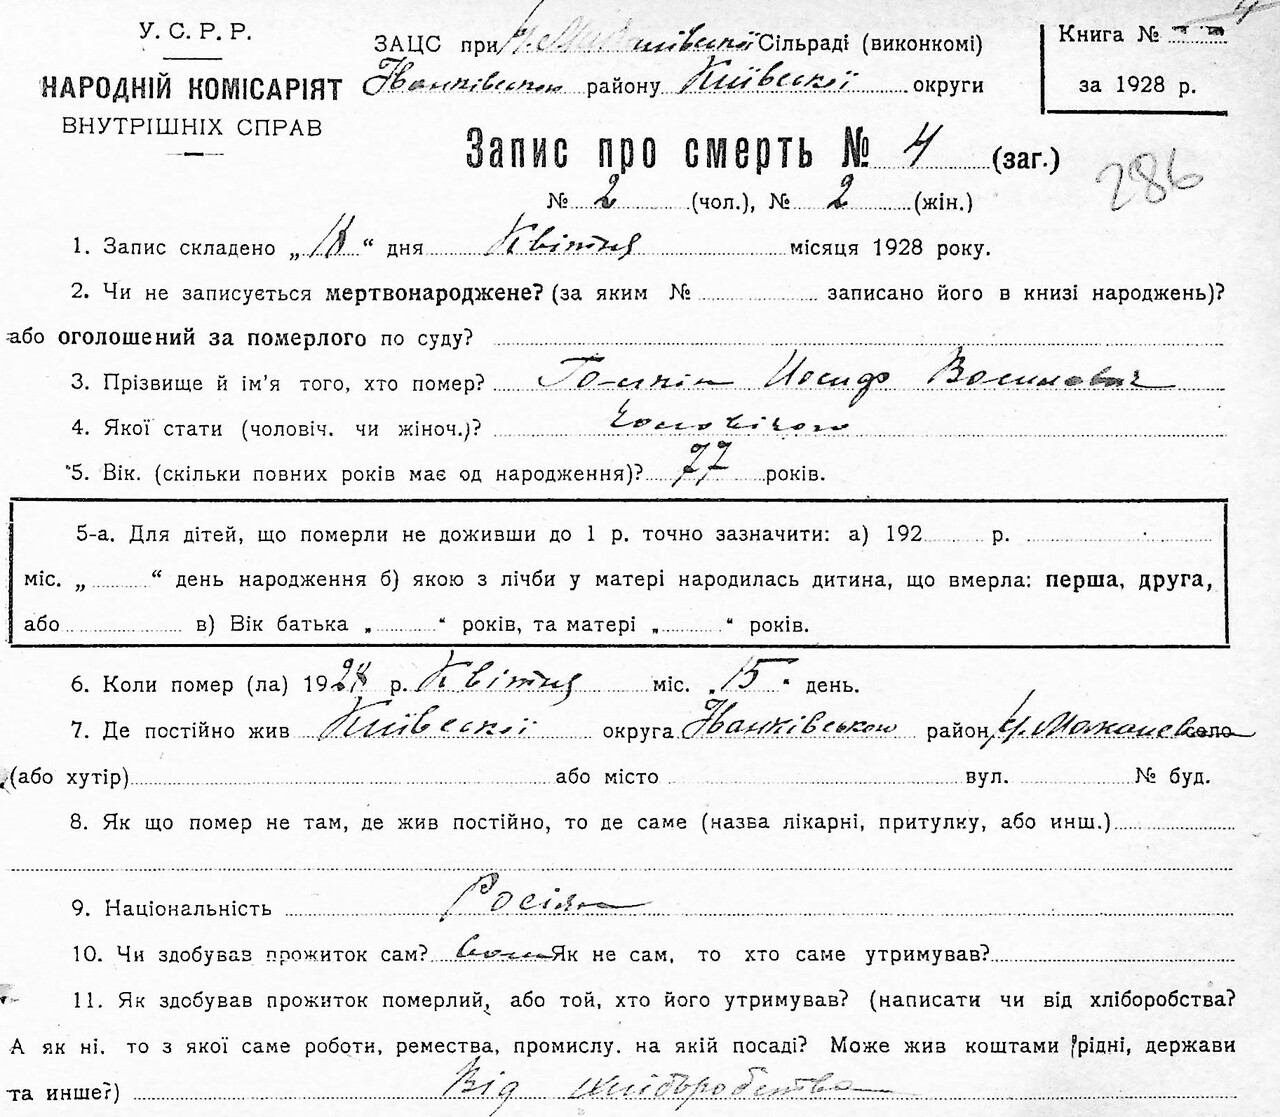 У. С. Р. Р.
НАРОДНІЙ КОМІСАРІЯТ
ВНУТРІШНІХ СПРАВ
ЗАЦС при Сільраді (виконкомі)
району Київської округи
Книга №
за 1928 р.
Запис про смерть № 4 (заг.)
286
№ 2 (чол.), № 2 (жін.)
1. Запис складено „ 18 “ дня Квітня місяця 1928 року.
2. Чи не записується мертвонароджене? (за яким № записано його в книзі народжень)?
або оголошений за померлого по суду?
3. Прізвище й ім'я того, хто помер? Иосиф
4. Якої стати (чоловіч. чи жіноч.)? Чоловічого
5. Вік. (скільки повних років має од народження)? 77 років.
5-а. Для дітей, що померли не доживши до 1 р. точно зазначити: а) 192 р.
міс. „ “ день народження б) якою з лічби у матері народилась дитина, що вмерла: перша, друга,
або в) Вік батька „ “ років, та матері „ “ років.
6. Коли помер (ла) 1928 р. Квітня міс. „ 15 “ день.
7. Де постійно жив Київської округа район село
(або хутір) або місто вул. № буд.
8. Як що помер не там, де жив постійно, то де саме (назва лікарні, притулку, або инш.)
9. Національність Росіян
10. Чи здобував прожиток сам? сам Як не сам, то хто саме утримував?
11. Як здобував прожиток померлий, або той, хто його утримував? (написати чи від хліборобства?
А як ні. то з якої саме роботи, ремества, промислу. на якій посаді? Може жив коштами рідні, держави
та инше?) Від хліборобства